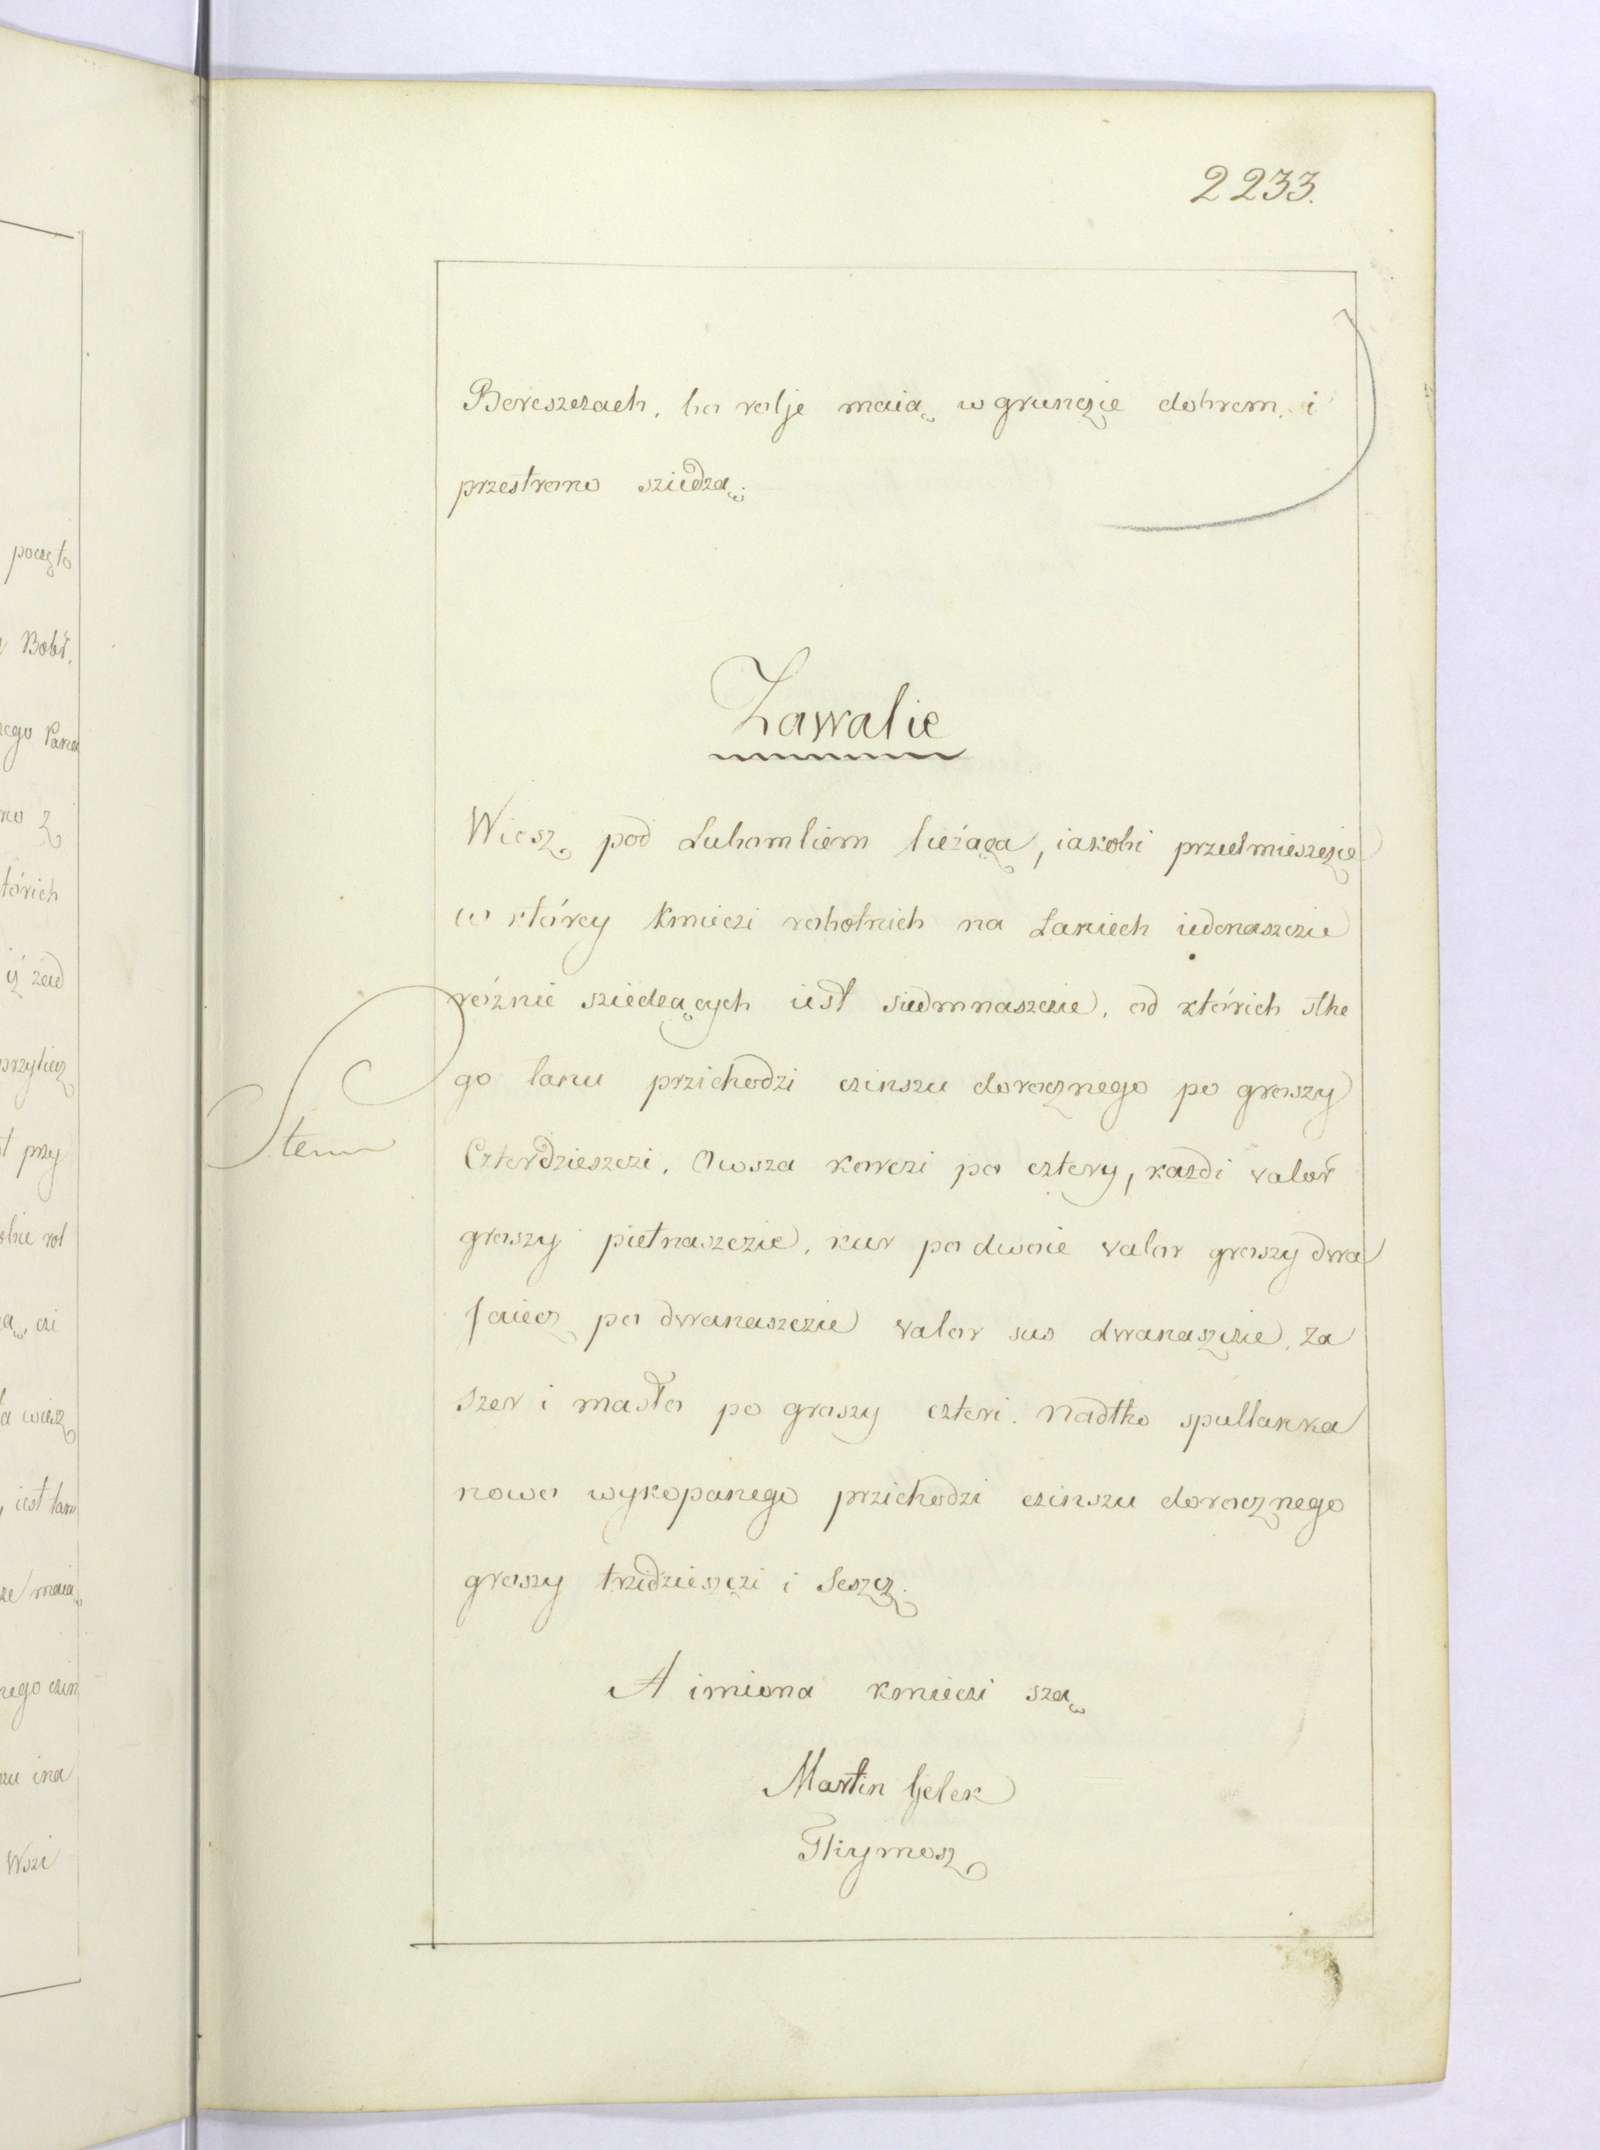 2233.
Boreszczach, bo rolje maią w grunczie dobrem. i
przestrono sziedzą.
Zawalie
Wiesz pod Lubomliem lieżąca, iakobi przietmieszczie
w ktorey kmieczi robotnich na Laniech iedenaszczie
rożnie sziedzących iest siedmnaszczie, od ktorich sthe
go lanu przichodzi czinszu dorocznego po groszy
Czterdzieszczi. Owsza korczi po cztery, kazdi valor
groszy pietnaszczie, kur po dwoie valor groszy dwa
Jaiecz po dwanaszczie valor sus dwanaszczie. Za
szer i masło po groszy czteri. Nadtho spullanka
nowo wykopanego przichodzi czinszu dorocznego
groszy trzidzieszczi i seszcz.
A imiona kmieczi szą
Martin
Thymosz
Item
poczęto
Bobr.
ego Pana
torich
przylicz
st przy
wiesz
iest lan
maią
nego czin
ina
Wszi